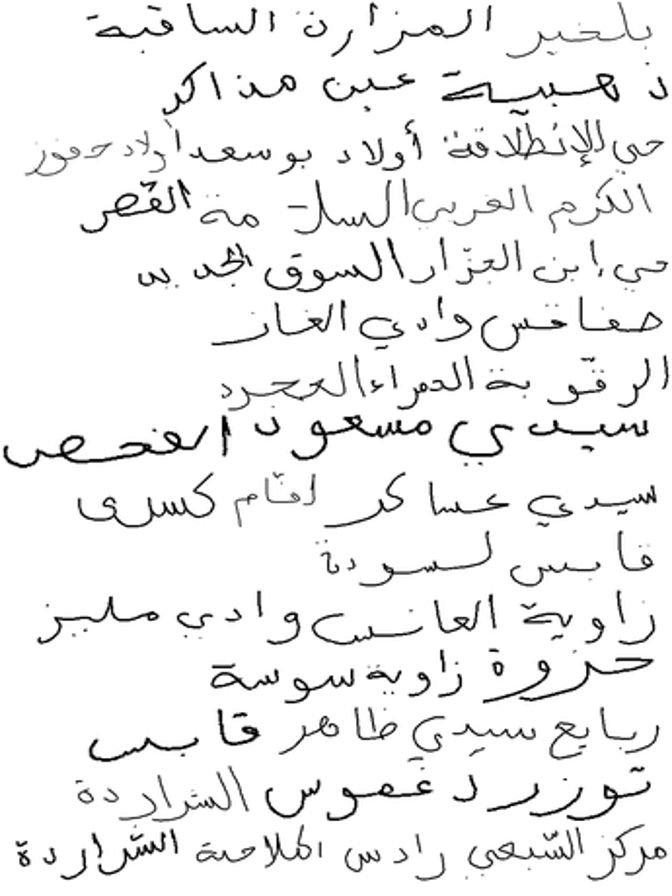 بلخير المزارة الساقية
ذهبية عين مذاكر
حي الإنطلاقة أولاد بوسعد أولاد حفوز
الكرم الغربي السلامة القصر
حي إبن الجزار السوق الجديد
صفاقس وادي الغار
الرقوبة الحمراء العجرد
سيدي مسعود الفحص
سيدي عساكر افام كسرى
قابس لسودة
زاوية العانس وادي مليز
حزوة زاوية سوسة
ربايع سيدي ظاهر قابس
توزر دغموس الشراردة
مركز الشبعي رادس الملاحة الشراردة